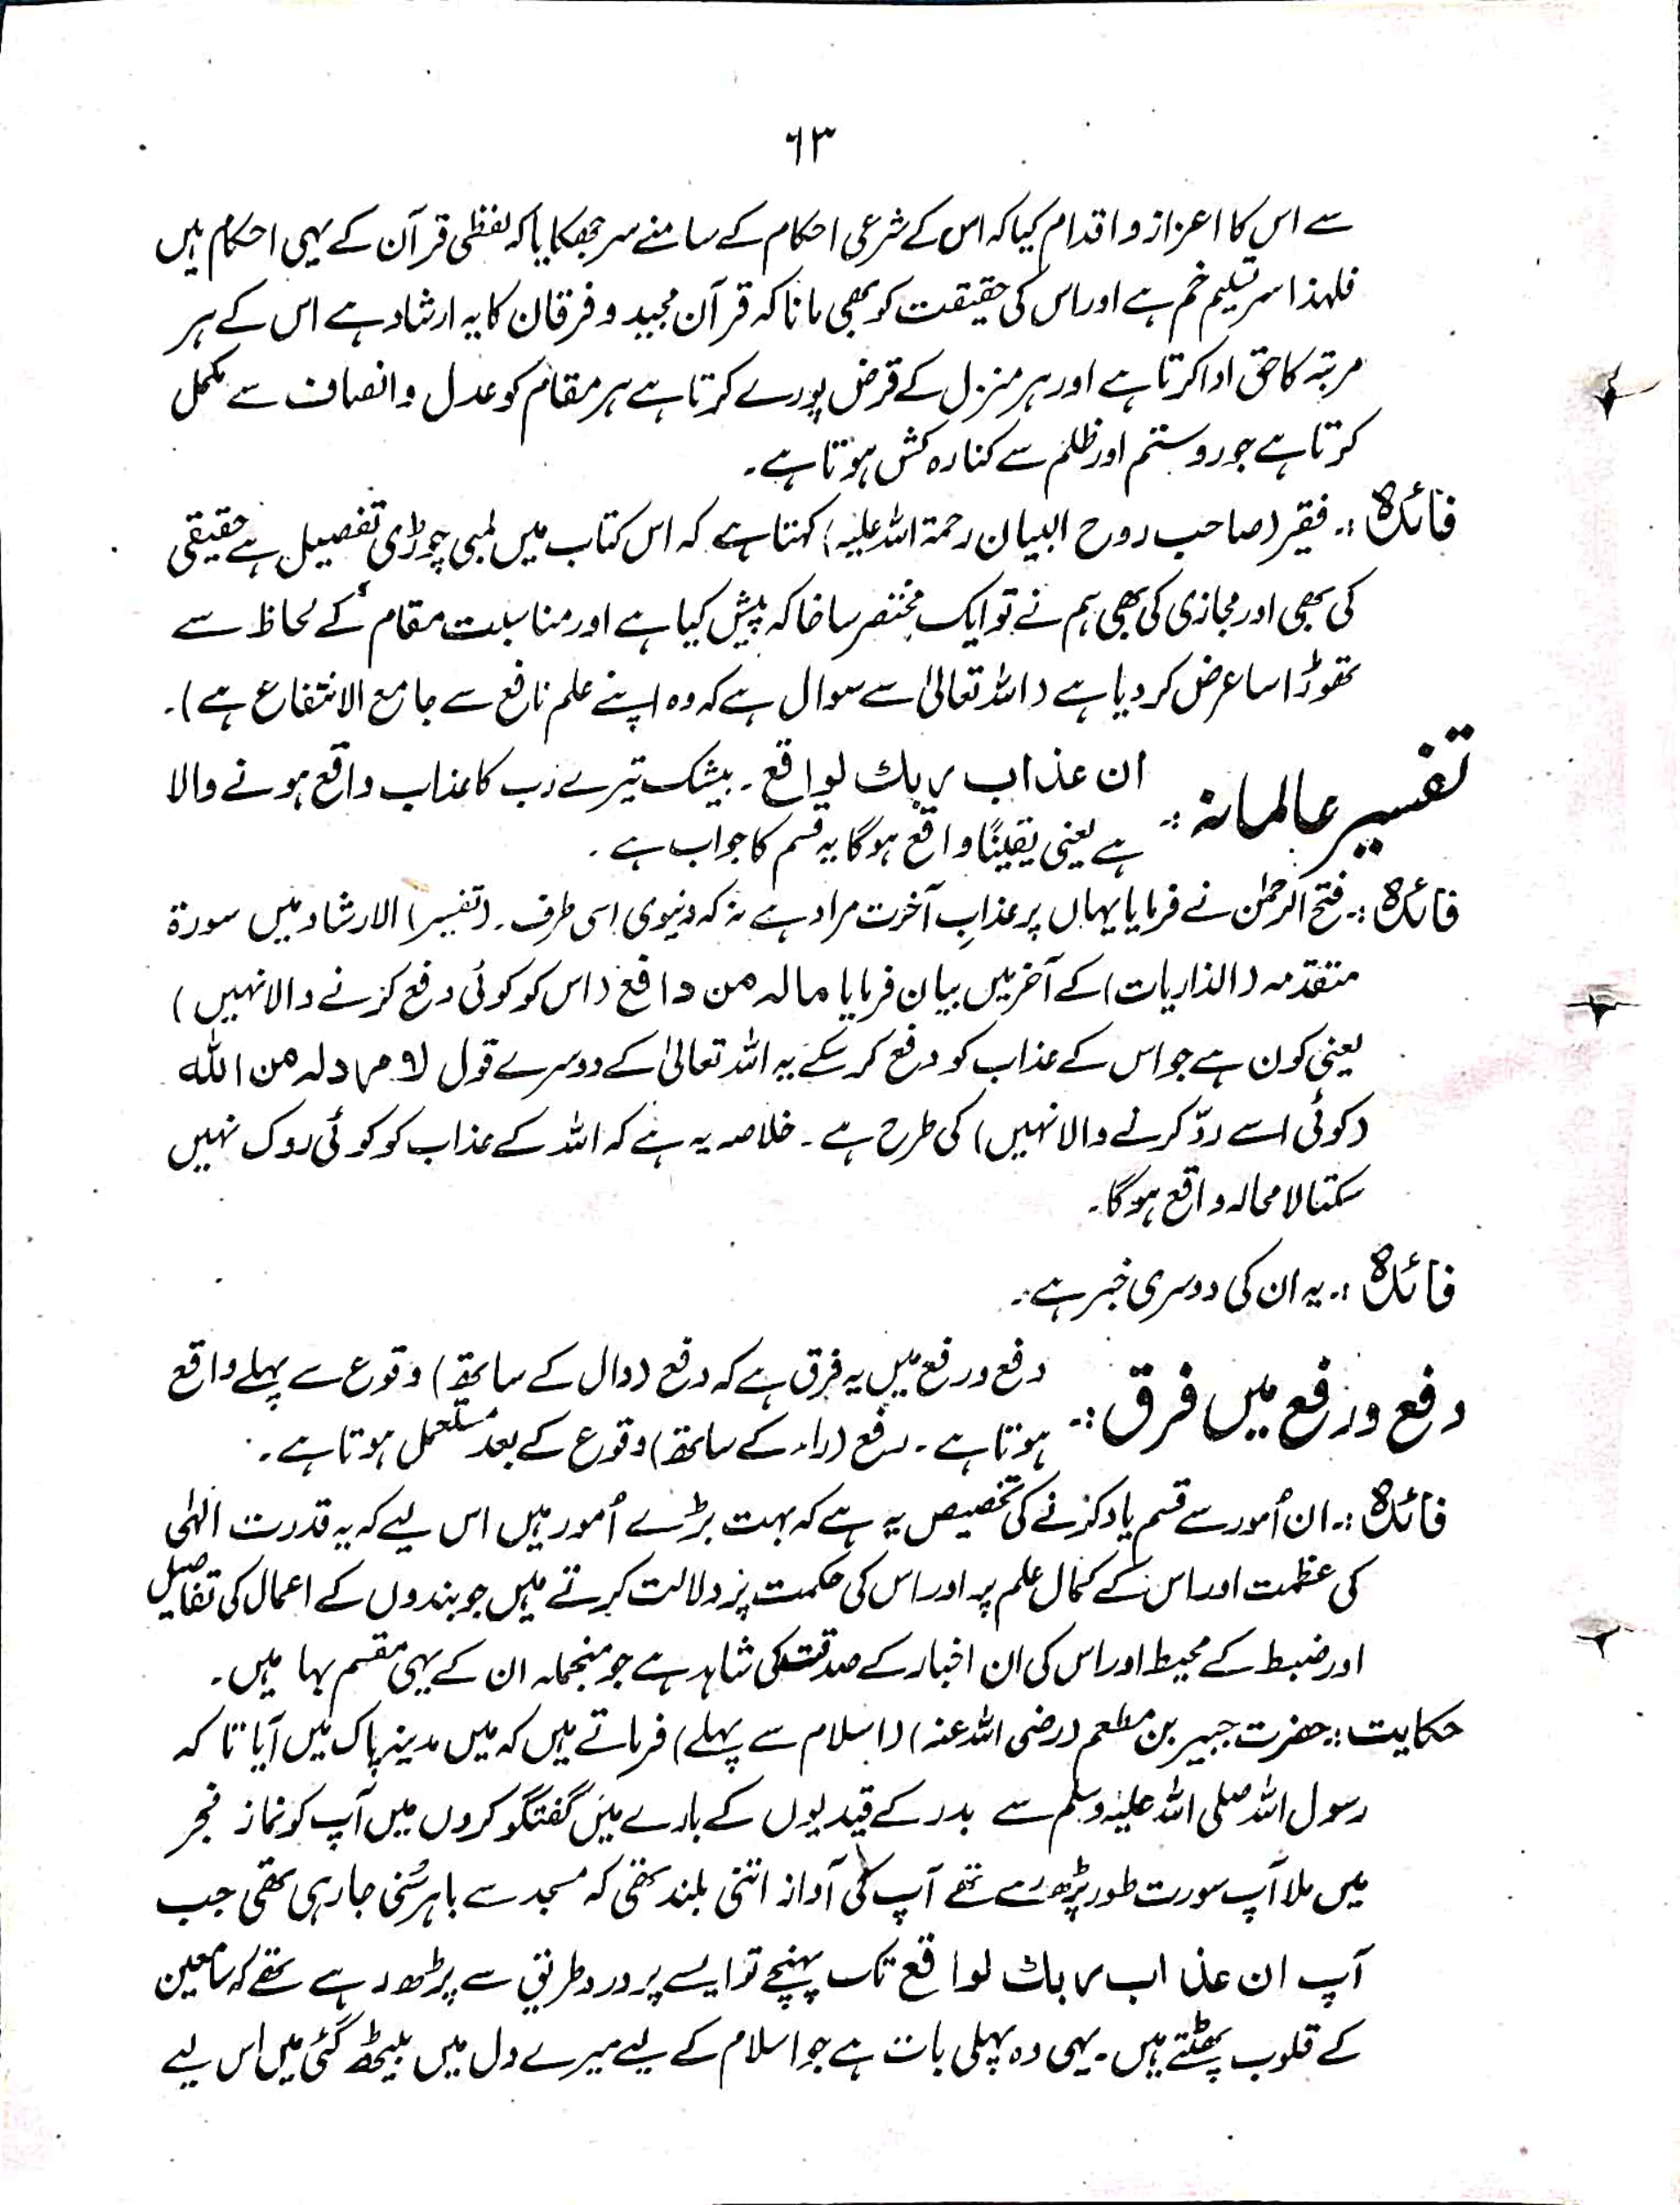 ٦٣
سے اس کا اعزاز و اقدام کیا کہ اس کے شرعی احکام کے سامنے سر جھکایا کہ لفظی قرآن کے یہی احکام ہیں
فلہذا سر تسلیم خم ہے اور اس کی حقیقت کو بھی مانا کہ قرآن مجید و فرقان کا یہ ارشاد ہے اس کے ہر
مرتبہ کا حق ادا کرتا ہے اور ہر منزل کے قرض پورے کرتا ہے ہر مقام کو عدل و انصاف سے مکمل
کرتا ہے جور و ستم اور ظلم سے کنارہ کش ہوتا ہے۔
فائدہ :۔ فقیر (صاحب روح البیان رحمۃ اللہ علیہ) کہتا ہے کہ اس کتاب میں لمبی چوڑی تفصیل ہے حقیقی
کی بھی اور مجازی کی بھی ہم نے تو ایک مختصر سا خاکہ پیش کیا ہے اور مناسبت مقام کے لحاظ سے
تھوڑا سا عرض کر دیا ہے (اللہ تعالیٰ سے سوال ہے کہ وہ اپنے علم نافع سے جامع الانتفاع ہے)۔
تفسیر عالمانہ :۔ ان عذاب ربك لواقع ۔ بیشک تیرے رب کا عذاب واقع ہونے والا
ہے یعنی یقیناً واقع ہوگا یہ قسم کا جواب ہے ۔
فائدہ :۔ فتح الرحمٰن نے فرمایا یہاں پر عذابِ آخرت مراد ہے نہ کہ دنیوی اسی طرف ۔ (تفسیر) الارشاد میں سورۃ
متقدمہ (الذاریات) کے آخر میں بیان فرمایا ماله من دافع (اس کو کوئی دفع کرنے والا نہیں)
یعنی کون ہے جو اس کے عذاب کو دفع کر سکے یہ اللہ تعالیٰ کے دوسرے قول لا مرد له من الله
(کوئی اسے ردّ کرنے والا نہیں) کی طرح ہے ۔ خلاصہ یہ ہے کہ اللہ کے عذاب کو کوئی روک نہیں
سکتا لامحالہ واقع ہوگا۔
فائدہ :۔ یہ ان کی دوسری خبر ہے۔
دفع و رفع میں فرق :۔ دفع و رفع میں یہ فرق ہے کہ دفع (دال کے ساتھ) وقوع سے پہلے واقع
ہوتا ہے ۔ رفع (راء کے ساتھ) وقوع کے بعد مستعمل ہوتا ہے ۔
فائدہ :۔ ان اُمور سے قسم یاد کرنے کی تخصیص یہ ہے کہ بہت بڑے اُمور ہیں اس لیے کہ یہ قدرت الٰہی
کی عظمت اور اس کے کمال علم پر اور اس کی حکمت پر دلالت کرتے ہیں جو بندوں کے اعمال کی تفاصیل
اور ضبط کے محیط اور اس کی ان اخبار کے صدقت کی شاہد ہے جو منجملہ ان کے یہی مقسم بہا ہیں۔
حکایت :۔ حضرت جبیر بن مطعم (رضی اللہ عنہ) (اسلام سے پہلے) فرماتے ہیں کہ میں مدینہ پاک میں آیا تا کہ
رسول اللہ صلی اللہ علیہ وسلم سے بدر کے قیدیوں کے بارے میں گفتگو کروں میں آپ کو نماز فجر
میں ملا آپ سورت طور پڑھ رہے تھے آپ کی آواز اتنی بلند تھی کہ مسجد سے باہر سُنی جا رہی تھی جب
آپ ان عذاب ربك لواقع تک پہنچے تو ایسے پر درد طریق سے پڑھ رہے تھے کہ سامعین
کے قلوب پھٹتے ہیں۔ یہی وہ پہلی بات ہے جو اسلام کے لیے میرے دل میں بیٹھ گئی میں اس لیے